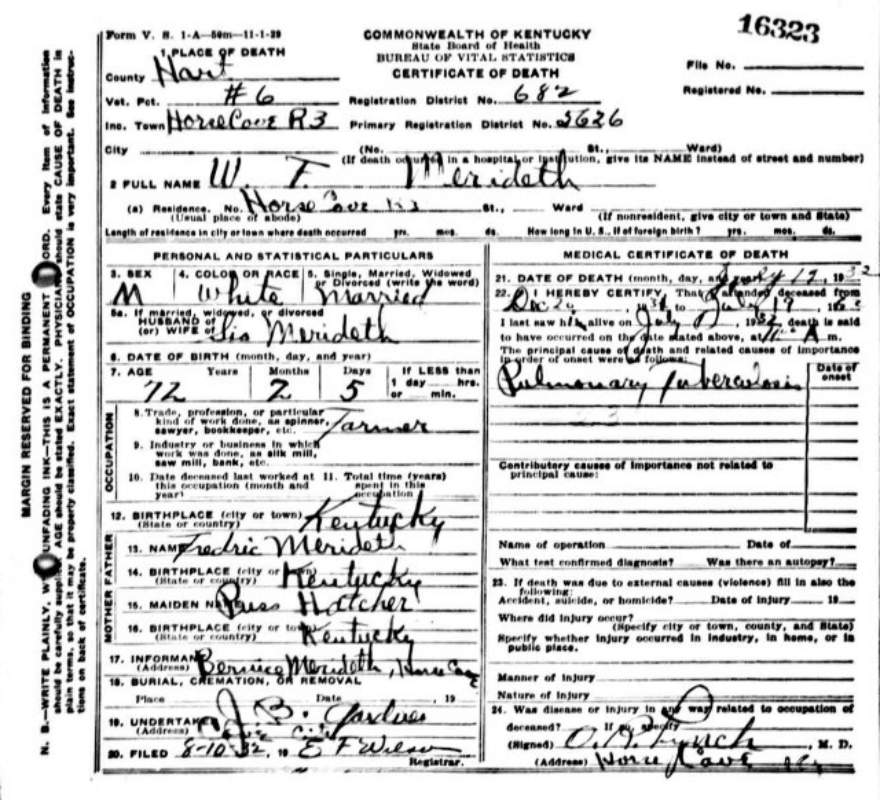 16323
Form V. S. 1-A—50m—11-1-29
COMMONWEALTH OF KENTUCKY
State Board of Health
BUREAU OF VITAL STATISTICS
CERTIFICATE OF DEATH
File No.
Registered No.
1. PLACE OF DEATH
County Hart
Vot. Pct. #6 Registration District No. 682
Inc. Town Horse Cave R3 Primary Registration District No. 2626
City (No. St., Ward)
(If death occurred in a hospital or institution, give its NAME instead of street and number)
2 FULL NAME W. T. Merideth
(a) Residence. No. Horse Cave R3 St., Ward
(Usual place of abode) (If nonresident, give city or town and State)
Length of residence in city or town where death occurred yrs. mos. ds. How long in U. S., if of foreign birth? yrs. mos. ds.
PERSONAL AND STATISTICAL PARTICULARS
3. SEX 4. COLOR OR RACE 5. Single, Married, Widowed
or Divorced (write the word)
M White Married
5a. If married, widowed, or divorced
HUSBAND of
(or) WIFE of Merideth
6. DATE OF BIRTH (month, day, and year)
7. AGE Years Months Days If LESS than
1 day hrs.
or min.
72 2 5
OCCUPATION
8. Trade, profession, or particular
kind of work done, as spinner,
sawyer, bookkeeper, etc. Farmer
9. Industry or business in which
work was done, as silk mill,
saw mill, bank, etc.
10. Date deceased last worked at
this occupation (month and
year)
11. Total time (years)
spent in this
occupation
12. BIRTHPLACE (city or town)
(State or country) Kentucky
FATHER
13. NAME Fredric Merideth
14. BIRTHPLACE (city or town)
(State or country) Kentucky
MOTHER
15. MAIDEN NAME Russ Hatcher
16. BIRTHPLACE (city or town)
(State or country) Kentucky
17. INFORMANT
(Address) Bernice Merideth, Horse Cave
18. BURIAL, CREMATION, OR REMOVAL
Place Date , 19
19. UNDERTAKER J. B. Gardner
(Address) Cave City
20. FILED 8-10-32, 19 E F Wilson
Registrar.
MEDICAL CERTIFICATE OF DEATH
21. DATE OF DEATH (month, day, and year) July 19, 1932
22. I HEREBY CERTIFY, That I attended deceased from
Dec 26, 1931 to July 19, 193
I last saw him alive on July , 1932 death is said
to have occurred on the date stated above, at A m.
The principal cause of death and related causes of importance
in order of onset were as follows:
Date of
onset
Pulmonary Tuberculosis
23
Contributory causes of importance not related to
principal cause:
Name of operation Date of
What test confirmed diagnosis? Was there an autopsy?
23. If death was due to external causes (violence) fill in also the
following:
Accident, suicide, or homicide? Date of injury 19
Where did injury occur?
(Specify city or town, county, and State)
Specify whether injury occurred in industry, in home, or in
public place.
Manner of injury
Nature of injury
24. Was disease or injury in any way related to occupation of
deceased? If so, specify
(Signed) O. R. Lynch, M. D.
(Address) Horse Cave Ky
MARGIN RESERVED FOR BINDING
N. B.—WRITE PLAINLY, WITH UNFADING INK—THIS IS A PERMANENT RECORD. Every item of information
should be carefully supplied. AGE should be stated EXACTLY. PHYSICIANS should state CAUSE OF DEATH in
plain terms, so that it may be properly classified. Exact statement of OCCUPATION is very important. See instruc-
tions on back of certificate.